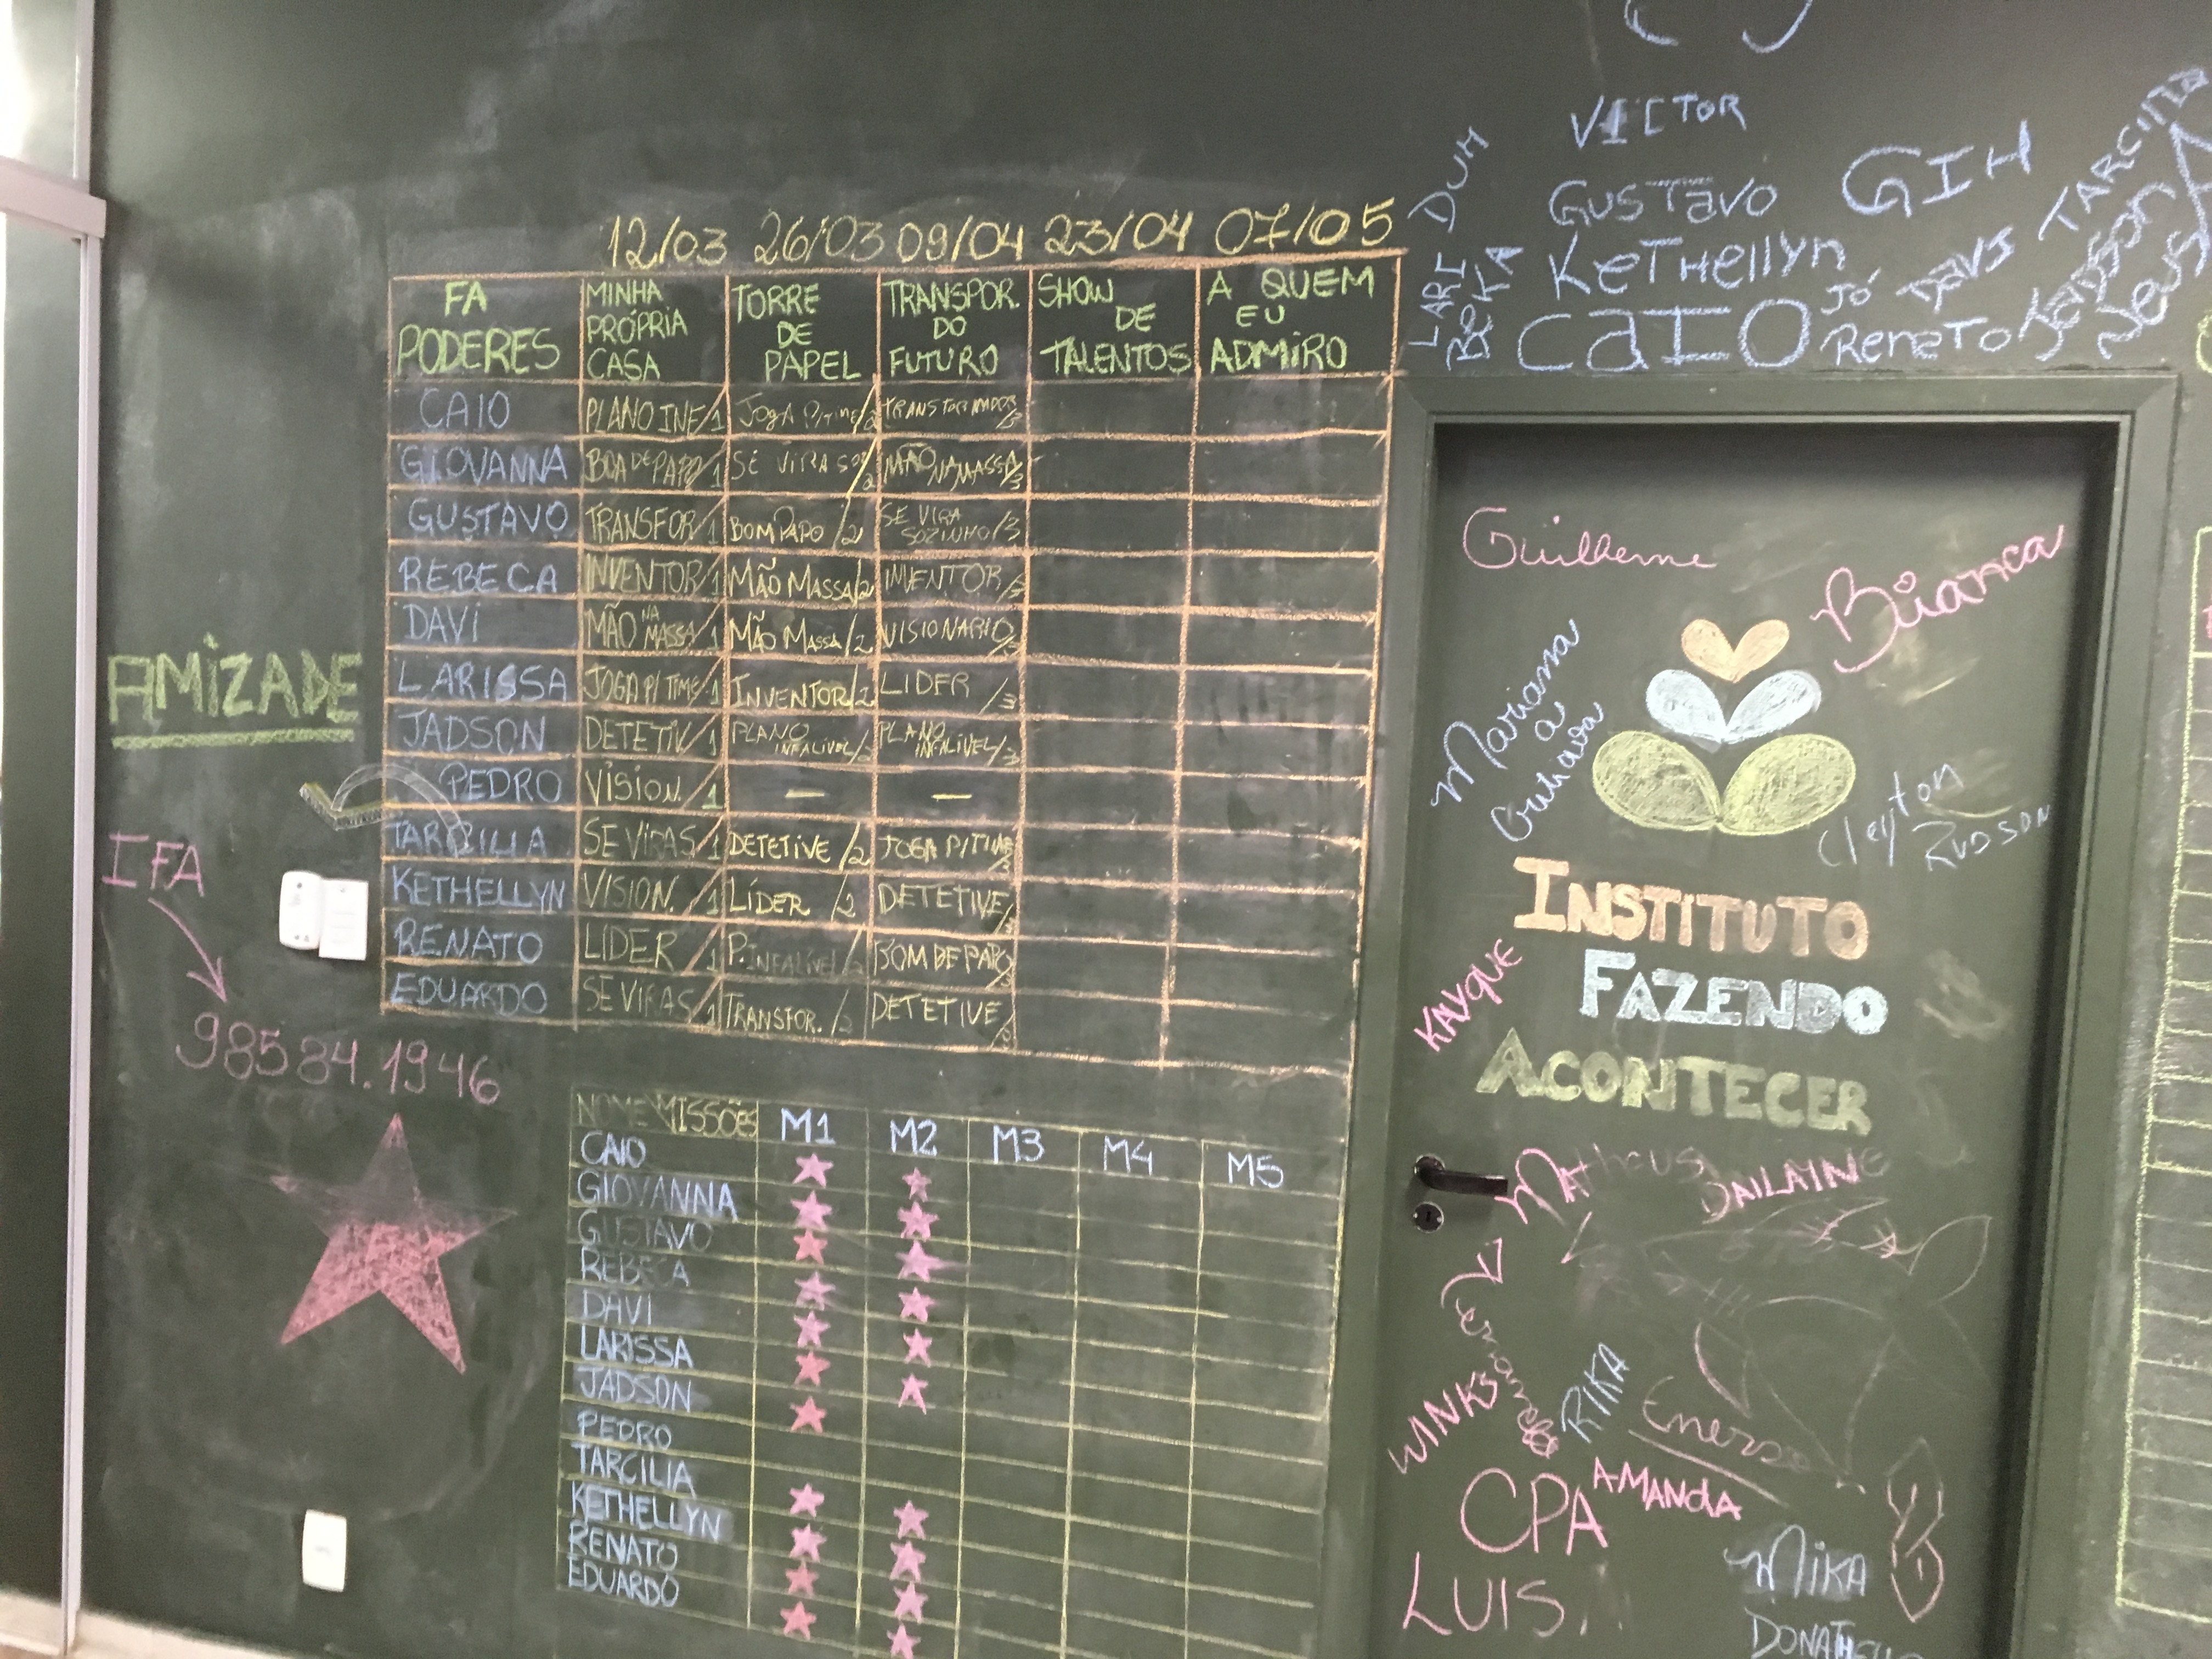 12/03 26/03 09/04 23/04 07/05
FA PODERES MINHA PRÓPRIA CASA TORRE DE PAPEL TRANSPOR. DO FUTURO SHOW DE TALENTOS A QUEM EU ADMIRO
CAIO PLANO INF/1 JOGA P/TIME/2 TRANSFORMADOR/3
GIOVANNA BOA DE PAPO/1 SE VIRA SOZ/2 MÃO NA MASSA/3
GUSTAVO TRANSFOR/1 BOM PAPO/2 SE VIRA SOZINHO/3
REBECA INVENTOR/1 MÃO MASSA/2 INVENTOR/3
DAVI MÃO NA MASSA/1 MÃO MASSA/2 VISIONARIO/3
LARISSA JOGA P/TIME/1 INVENTOR/2 LIDER/3
JADSON DETETIV/1 PLANO INFALIVEL/2 PLANO INFALIVEL/3
PEDRO VISION. 1 — —
TARCILLA SE VIRAS/1 DETETIVE/2 JOGA P/TIME/3
KETHELLYN VISION./1 LÍDER/2 DETETIVE/3
RENATO LIDER/1 P. INFALIVEL/2 BOM DE PAPO/3
EDUARDO SE VIRAS/1 TRANSFOR./2 DETETIVE/3
AMIZADE
IFA
98584.1946
NOME MISSÕES M1 M2 M3 M4 M5
CAIO
GIOVANNA
GUSTAVO
REBECA
DAVI
LARISSA
JADSON
PEDRO
TARCILIA
KETHELLYN
RENATO
EDUARDO
VICTOR
DUH
GUSTAVO
GIH
TARCILLA
LARI
BEKA
KETHELLYN
JÓ
DAVI
JADSON
CAIO
RENATO
Guilherme
Bianca
Mariana
a
Cleyton
RUDSON
INSTITUTO
FAZENDO
ACONTECER
KAYQUE
Matheus
DAILAINE
WINKS
RIKA
CPA
AMANdA
LUIS
MIKA